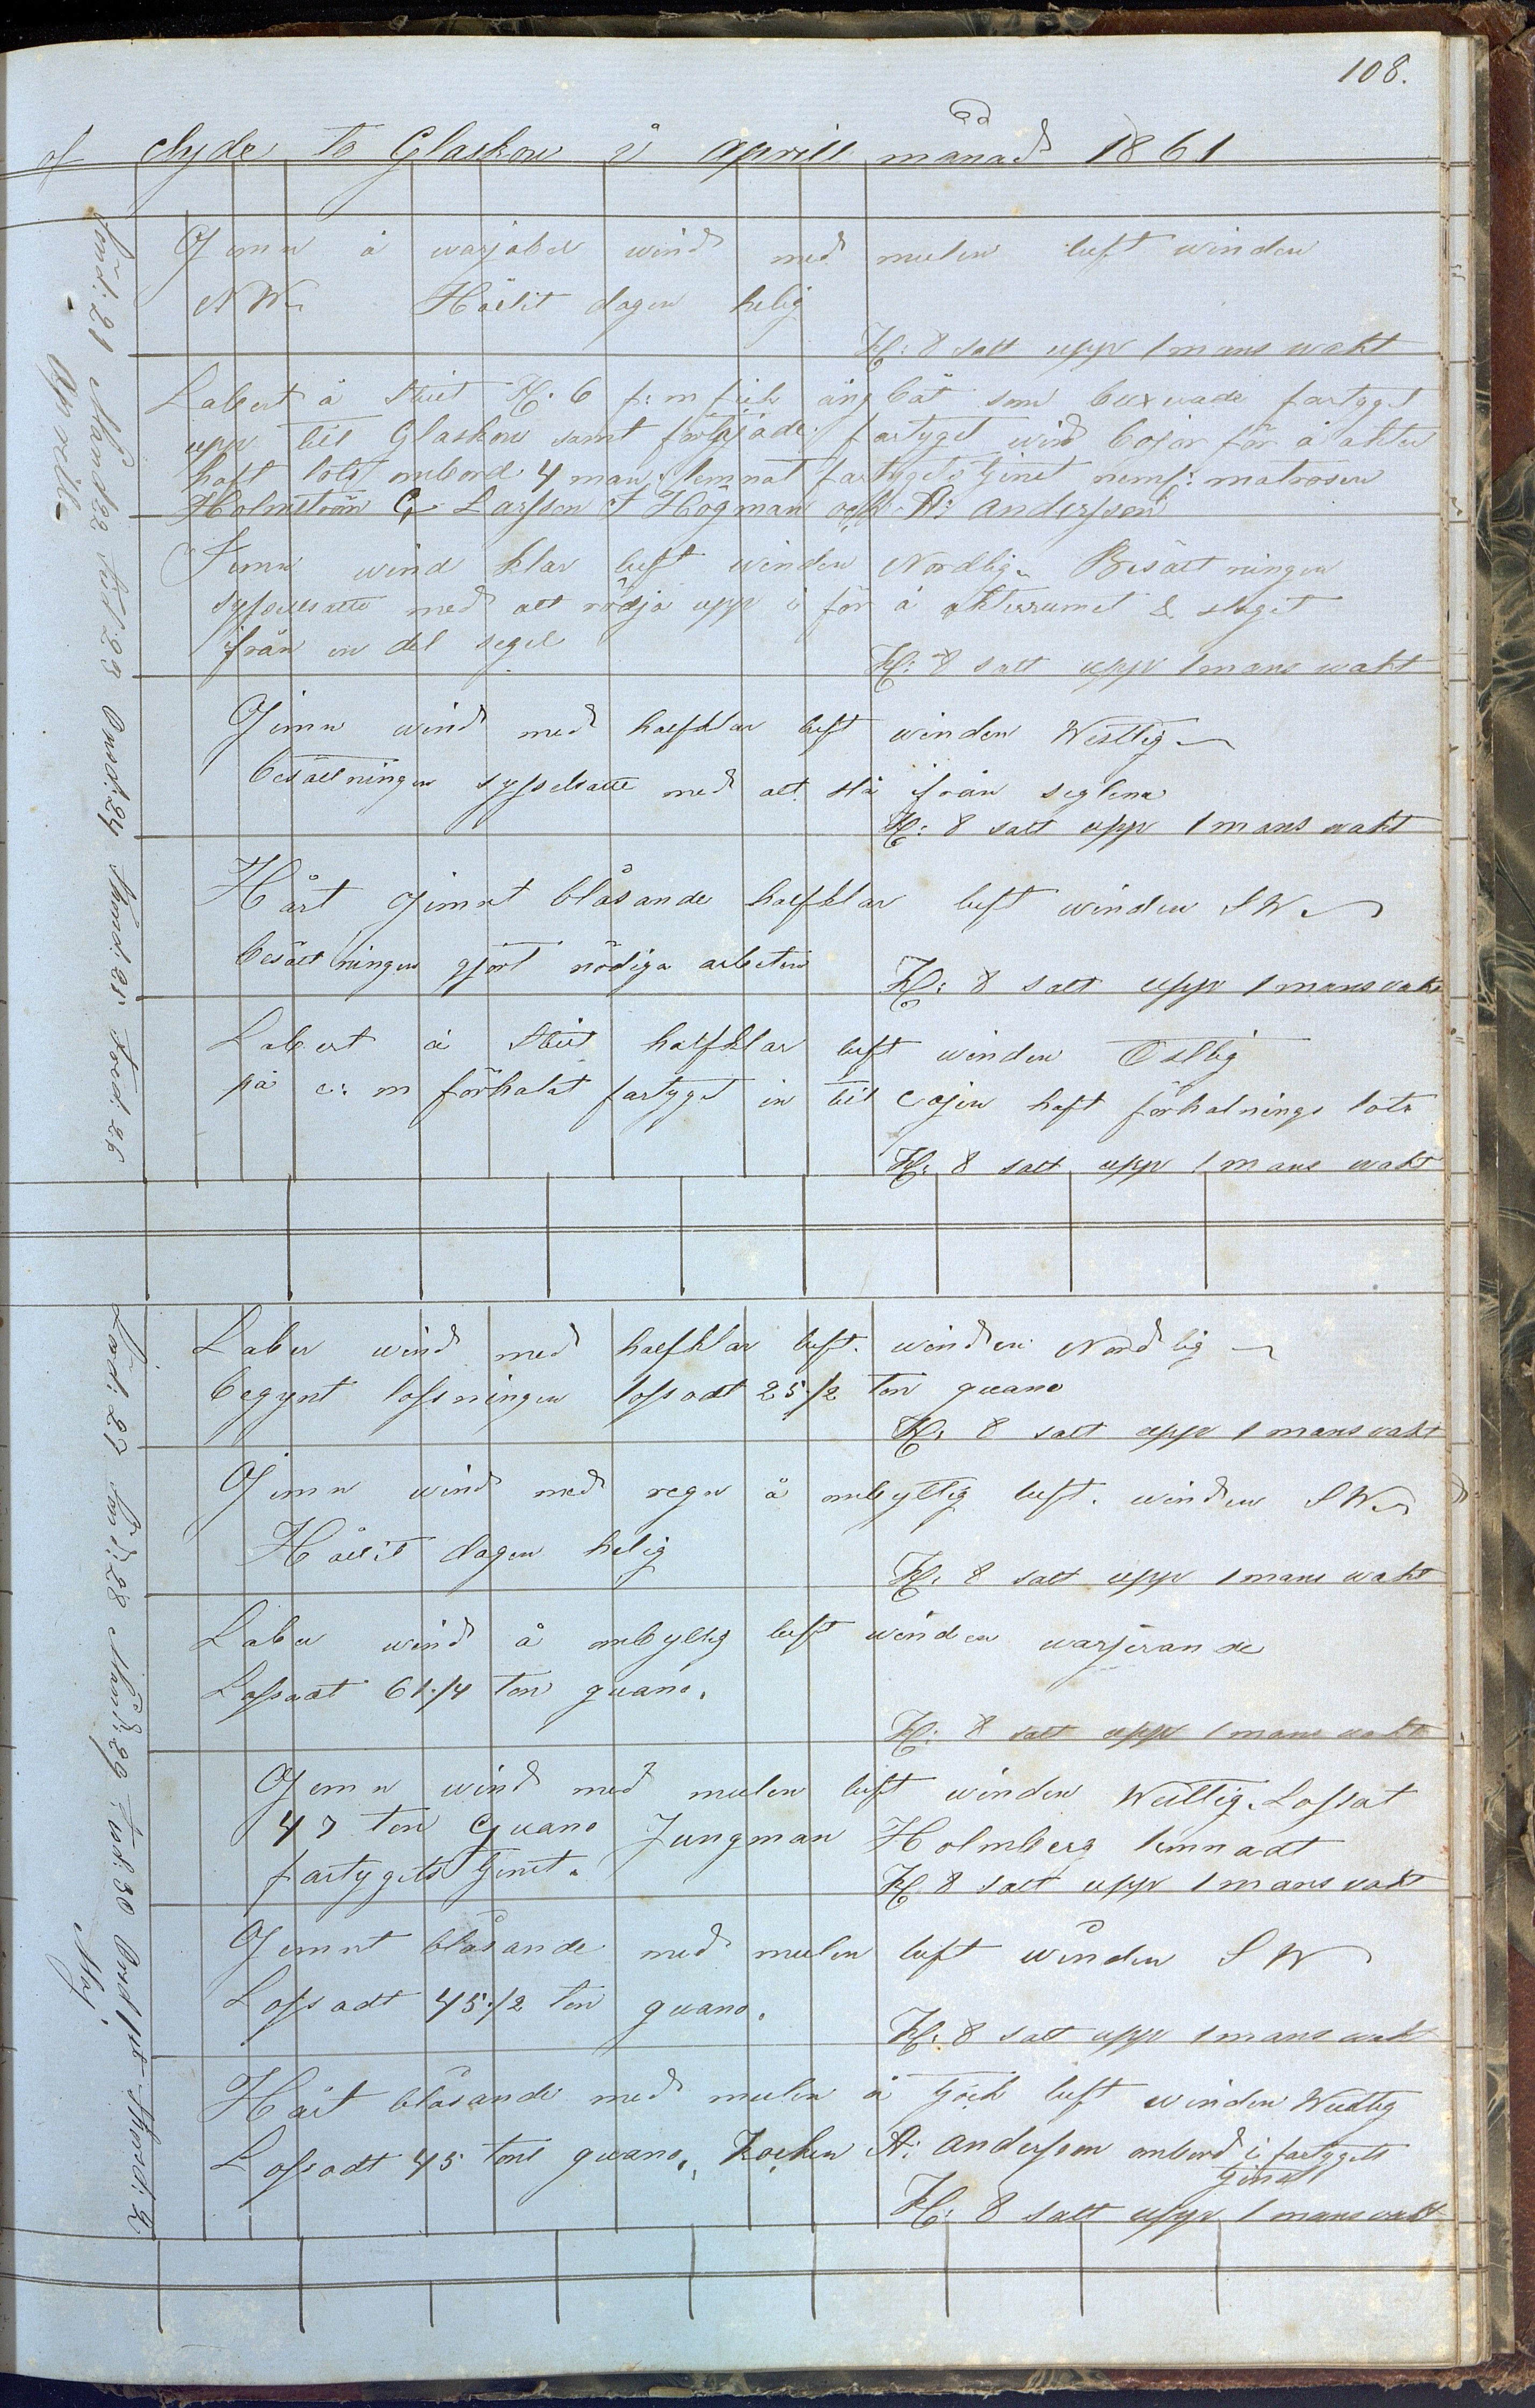 108.
of Clyde to Glaskow i aprill månad 1861
Sönd: 21 Månd: 22 Tisd: 23 Onsd: 24 Thorsd: 25 Fred: 26
Aprill
Jemn å warjabel wind med mulen luft winden
NW. Hållit dagen helig
Kl: 8 satt upp 1 mans wakt
Labert å Stilt Kl. 6 f: m fick ång båt som buxerade fartyget
upp till Glaskow samt förtöjade fartyget wid bojar för å akter
haft lots ombord 4 man lemnat fartygets tjenst neml: matrosen
Holmström C Larsson F Högman och A: Andersson
Jemn wind klar luft winden Nordlig. Besättningen
sysselsatte med att rödja upp i för å akterrumet & slaget
ifrån en del segel
Kl: 8 satt upp 1 mans wakt
Jemn wind med halfklar luft winden Westlig
besättningen sysselsatte med att slå ifrån seglena
Kl: 8 satt upp 1 mans wakt
Hårt jemnt blåsande halfklar luft winden SW
besättningen gjort nödiga arbeten
Kl: 8 satt upp 1 mans wakt
Labert å Stilt halfklar luft winden Östlig
på e: m förhalat fartyget in till cajen haft förhalnings lots
Kl: 8 satt upp 1 mans wakt
Lörd: 27 Sönd: 28 Månd: 29 Tisd: 30 Onsd 1st Thorsd: 2
Maj
Laber wind med halfklar luft. winden Nordlig
begynt lossningen lossadt 25 1/2 ton guano
Kl: 8 satt upp 1 mans wakt
Jemn wind med regn å ombytlig luft. winden SW
Hållit dagen helig
Kl: 8 satt upp 1 mans wakt
Laber wind å ombytlig luft winden warjerande
Lossadt 61 1/4 ton guano.
Kl: 8 satt upp 1 mans wakt
Jemn wind med mulen luft winden Westlig. Lossat
47 ton Guano Jungman Holmberg lemnadt
fartygets tjenst.
Kl. 8 satt upp 1 mans wakt
Jemnt blåsande med mulen luft winden SW
Lossadt 45 1/2 ton guano.
Kl: 8 satt upp 1 mans wakt
Hårt blåsande med mulen å tjock luft winden Westlig
Lossadt 45 tons guano. Kocken A: Andersson ombord i fartygets
tjenst
Kl: 8 satt upp 1 mans wakt